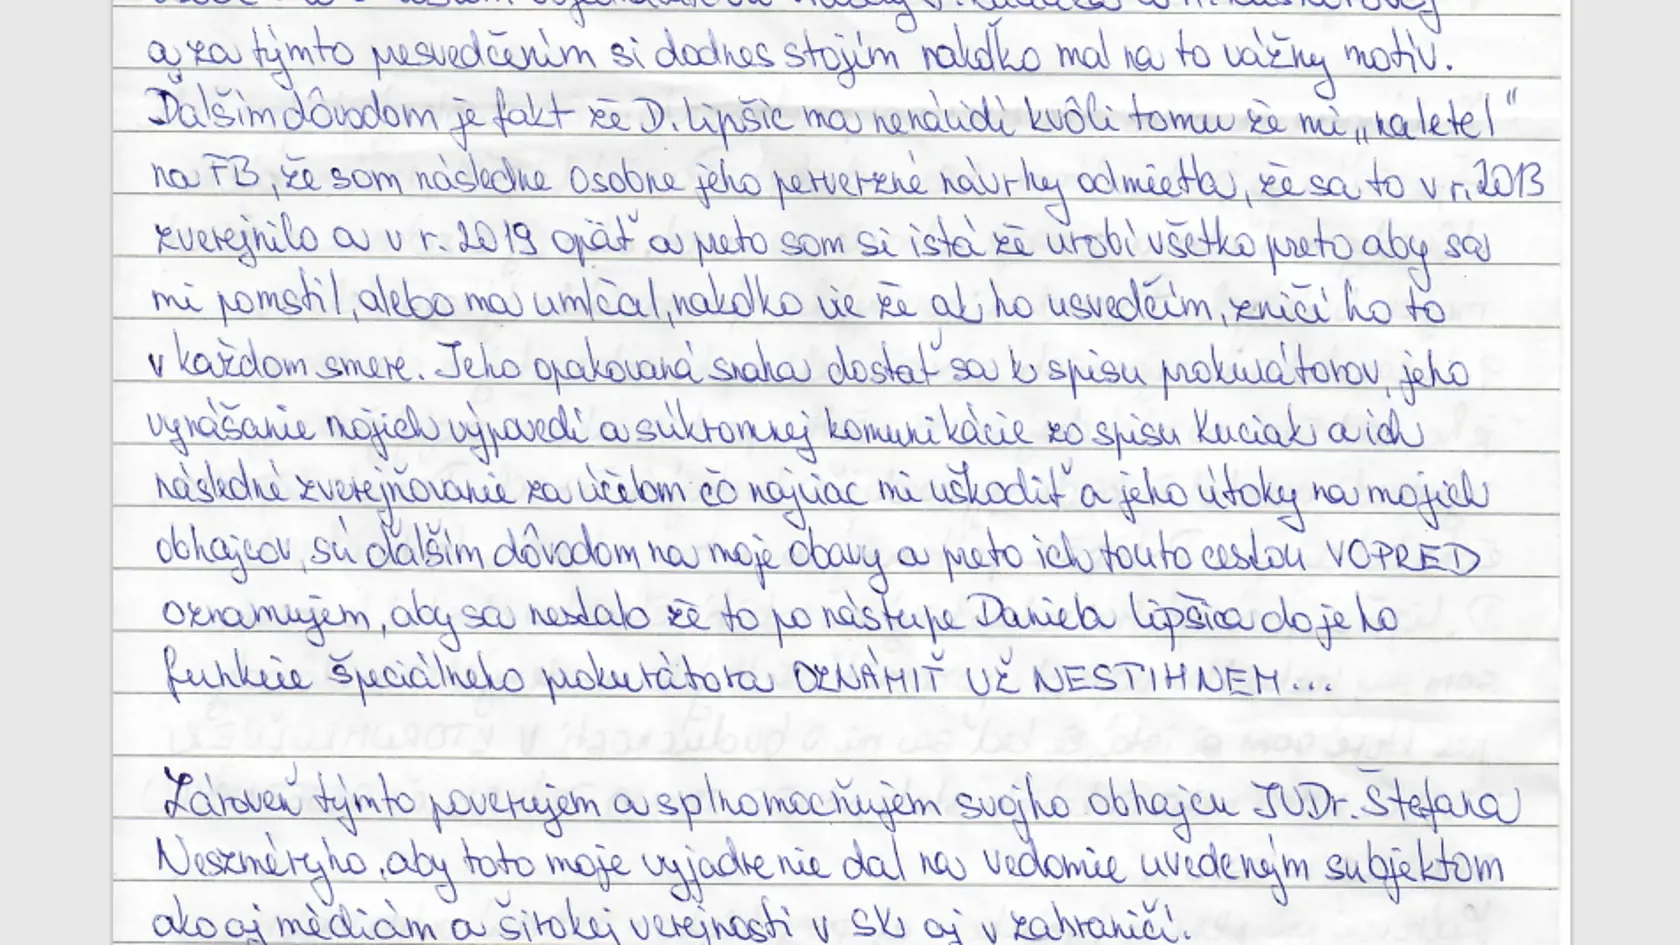 a za týmto presvedčením si dodnes stojím nakoľko mal na to vážny motív.
Ďalším dôvodom je fakt že D. Lipšic ma nenávidí kvôli tomu že mi „naletel"
na FB, že som následne osobne jeho perverzné návrhy odmietla, že sa to v r. 2013
zverejnilo a v r. 2019 opäť a preto som si istá že urobí všetko preto aby sa
mi pomstil, alebo ma umlčal, nakolko vie že ak ho usvedčím, zničí ho to
v každom smere. Jeho opakovaná snaha dostať sa k spisu prokurátorov, jeho
vynášanie mojich výpovedí a súkromnej komunikácie zo spisu Kuciak a ich
následné zverejňovanie za účelom čo najviac mi uškodiť a jeho útoky na mojich
obhajcov, sú ďalším dôvodom na moje obavy a preto ich touto cestou VOPRED
oznamujem, aby sa nestalo že to po nástupe Daniela Lipšica do jeho
funkcie špeciálneho prokurátora OZNÁMIŤ UŽ NESTIHNEM...
Zároveň týmto poverujem a splnomocňujem svojho obhajcu JUDr. Štefana
Neszméryho, aby toto moje vyjadrenie dal na vedomie uvedeným subjektom
ako aj médiám a širokej verejnosti v SR aj v zahraničí.